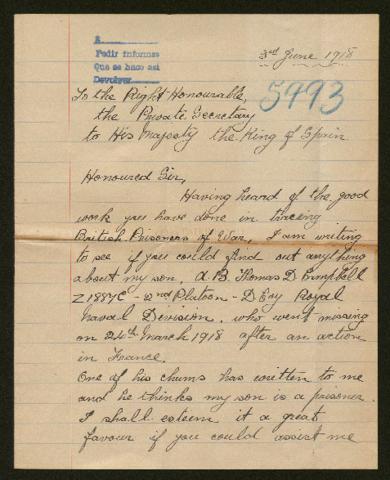 A
Pedir informes
Que se haco asi
Devolver
3rd June 1918
5993
To the Right Honourable,
the Private Secretary
to His Majesty the King of Spain
Honoured Sir,
Having heard of the good
work you have done in tracing
British Prisoners of War, I am writing
to see if you could find out anything
about my son, A B Thomas D Campbell
Z1887C - 2nd Platoon - D Coy Royal
Naval Division, who went missing
on 24th March 1918 after an action
in France.
One of his chums has written to me
and he thinks my son is a prisoner.
I shall esteem it a great
favour if you could assist me